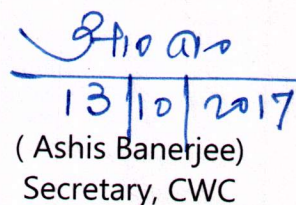 13|10|2017
( Ashis Banerjee)
Secretary, CWC